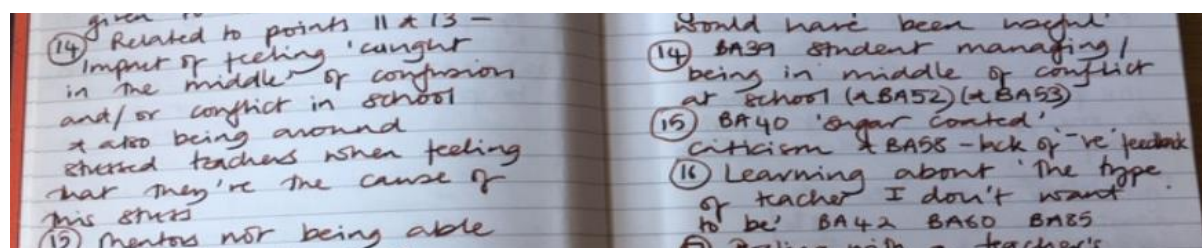 given
(14) Related to points 11 & 13 –
impact of feeling 'caught
in the middle' of confusion
and/or conflict in school
& also being around
stressed teachers when feeling
that they're the cause of
this stress
(15) Mentors not being able
would have been useful
(14) BA39 student managing/
being in middle of conflict
at school (& BA52) (& BA53)
(15) BA40 'sugar coated'
criticism & BA58 – lack of '-ve' feedback
(16) Learning about 'the type
of teacher I don't want
to be' BA42 BA60 BA85
with a teacher's